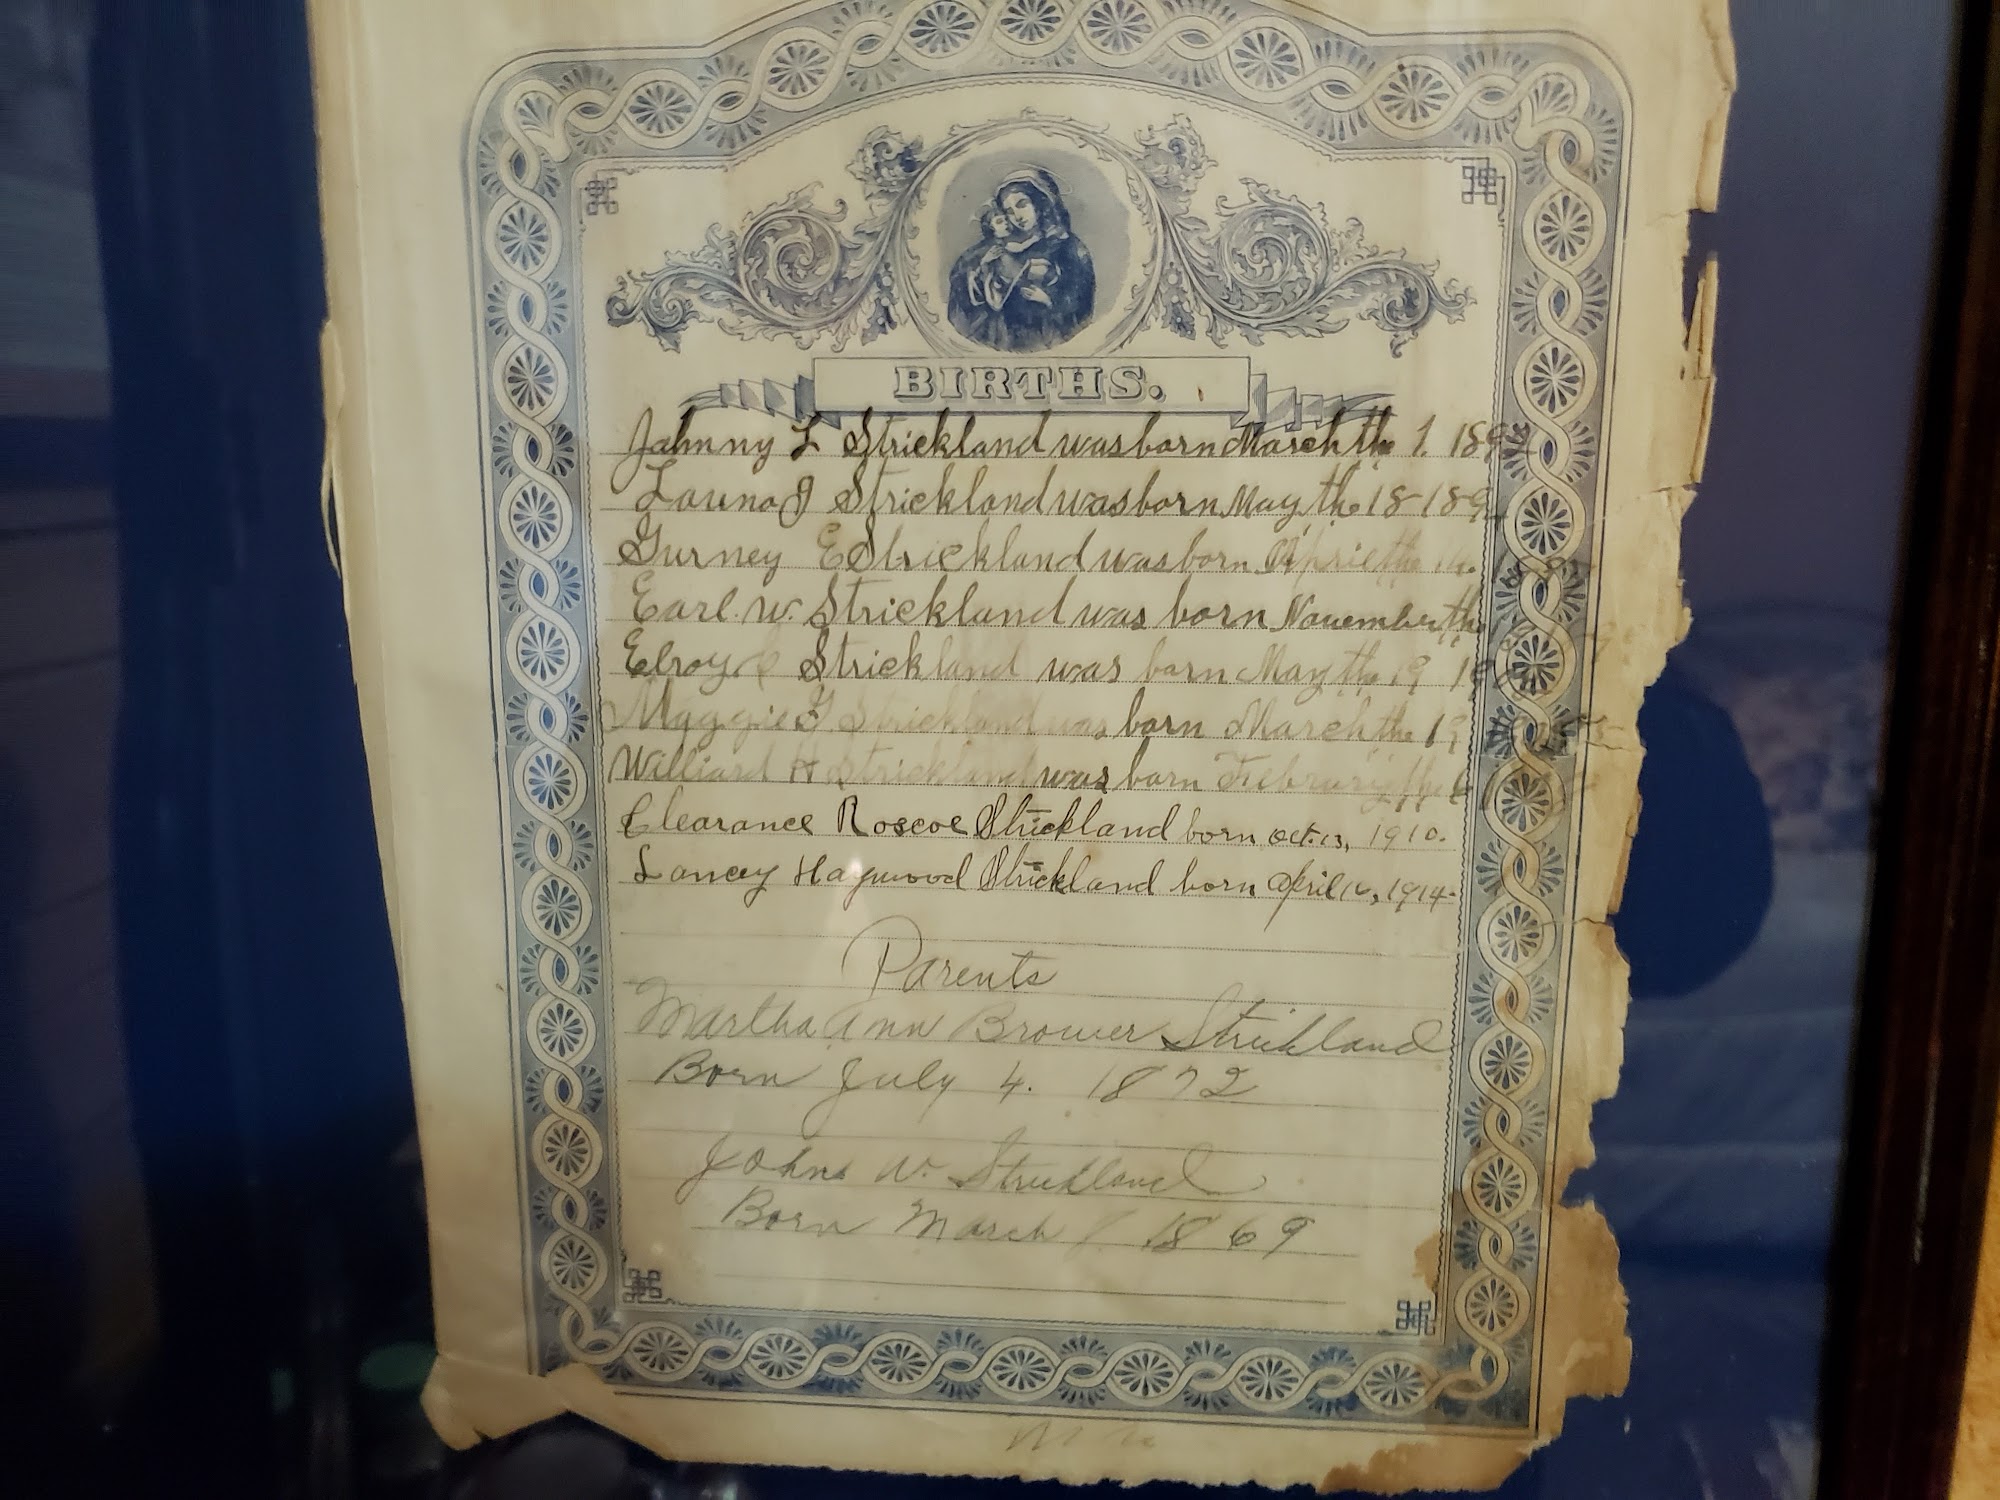 BIRTHS.
Johnny L Strickland was born March the 1. 189
Launa J Strickland was born May the 18 189
Gurney E Strickland was born Aprie the
Earl. W. Strickland was born November the
Elroy Strickland was born May the 19 19
Maggie G. Strickland was born March the 19
Williard H Strickland was born Februrry the 6
Clearance Roscoe Strickland born Oct. 13, 1910.
Lancey Haywood Strickland born April 16, 1914.
Parents
Martha Ann Brower Strickland
Born July 4. 1872
John W. Strickland
Born March 1869